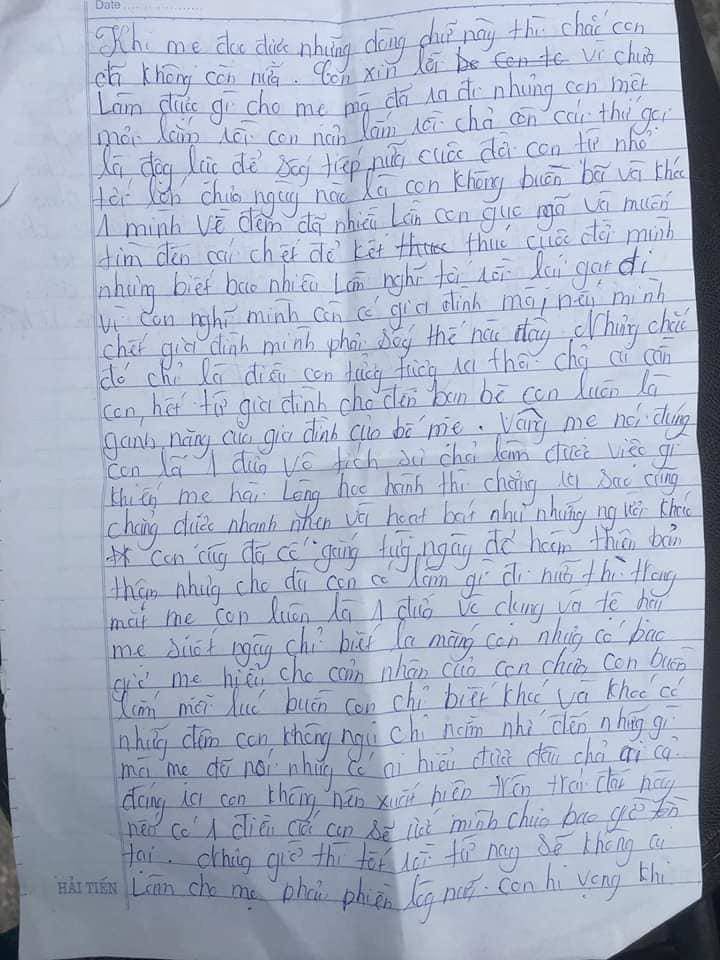 Date
Khi mẹ đọc được những dòng chữ này thì chắc con
đã không còn nữa. Con xin lỗi be con to vì chưa
Làm được gì cho mẹ mà đã ra đi nhưng con mệt
mỏi lắm rồi con nản lắm rồi chả còn cái thứ gọi
là động lực để sống tiếp nữa cuộc đời con từ nhỏ
tới lớn chưa ngày nào là con không buồn bã và khóc
1 mình về đêm đã nhiều lần con gục ngã và muốn
tìm đến cái chết để kết thươc thúc cuộc đời mình
nhưng biết bao nhiêu lần nghĩ tới rồi lại gạt đi
vì con nghĩ mình còn có gia đình mà nếu mình
chết gia đình mình phải sống thế nào đây. Nhưng chắc
đó chỉ là điều con tưởng tượng ra thôi chả ai cần
con, hết từ gia đình cho đến bạn bè con luôn là
gánh nặng của gia đình của bố mẹ. Vâng mẹ nói đúng
con là 1 đứa vô tích sự chả làm được việc gì
khiến mẹ hài lòng học hành thì chẳng ra sao cũng
chẳng được nhanh nhẹn và hoạt bát như những người khác
con cũng đã cố gắng từng ngày để hoàn thiện bản
thân nhưng cho dù con có làm gì đi nữa thì trong
mắt mẹ con luôn là 1 đứa vô dụng và tệ hại
mẹ suốt ngày chỉ biết la mắng con nhưng có bao
giờ mẹ hiểu cho cảm nhận của con chưa con buồn
lắm mỗi lúc buồn con chỉ biết khóc và khóc có
những đêm con không ngủ chỉ nằm nhớ đến những gì
mà mẹ đã nói nhưng có ai hiểu được đâu chả ai cả
đáng ra con không nên xuất hiện trên trái đất này
nếu có 1 điều ước con sẽ ước mình chưa bao giờ tồn
tại. Nhưng giờ thì tốt rồi từ nay sẽ không ai
HẢI TIẾN Làm cho mẹ phải phiền lòng nữa. Con hi vọng khi